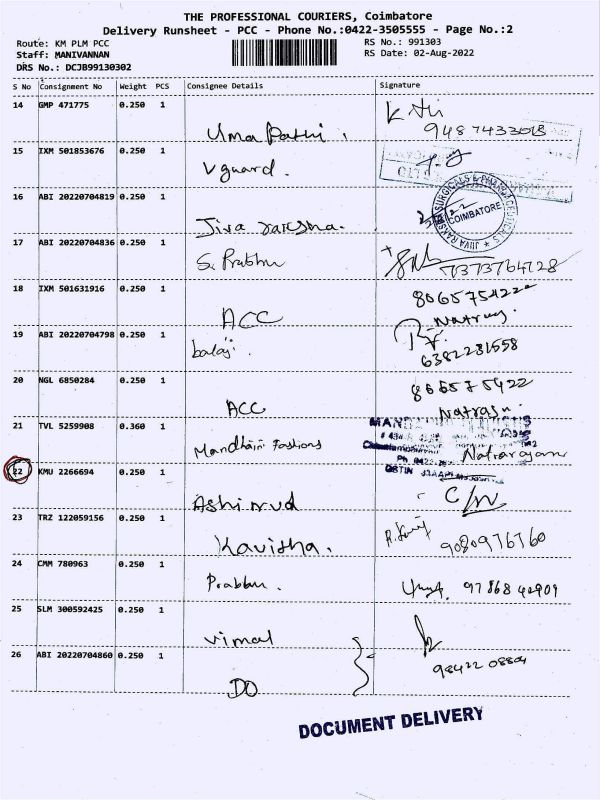 THE PROFESSIONAL COURIERS, Coimbatore
Delivery Runsheet - PCC - Phone No.:0422-3505555 - Page No.:2
Route: KM PLM PCC
RS No.: 991303
Staff: MANIVANNAN
RS Date: 02-Aug-2022
DRS No.: DCJB99130302
S No Consignment No Weight PCS Consignee Details Signature
14 GMP 471775 0.250 1
Uma Pathi.
9487433013
15 IXM 501853676 0.250 1
Vguard.
16 ABI 20220704819 0.250 1
Jiva raksha.
JIVA RAKSHA SURGICALS & PHARMACEUTICALS
COIMBATORE
17 ABI 20220704836 0.250 1
S. Prabhu
7373764728
18 IXM 501631916 0.250 1
ACC
19 ABI 20220704798 0.250 1
balaji.
6382231558
20 NGL 6850284 0.250 1
ACC
21 TVL 5259908 0.360 1
Mandhaini Fashions
Natrarayam
22 KMU 2266694 0.250 1
Ashirvud
23 TRZ 122059156 0.250 1
Kavisha.
9080976760
24 CMM 780963 0.250 1
Prabhu.
97868 42901
25 SLM 300592425 0.250 1
Vimal
26 ABI 20220704860 0.250 1
DO
98422 08804
DOCUMENT DELIVERY